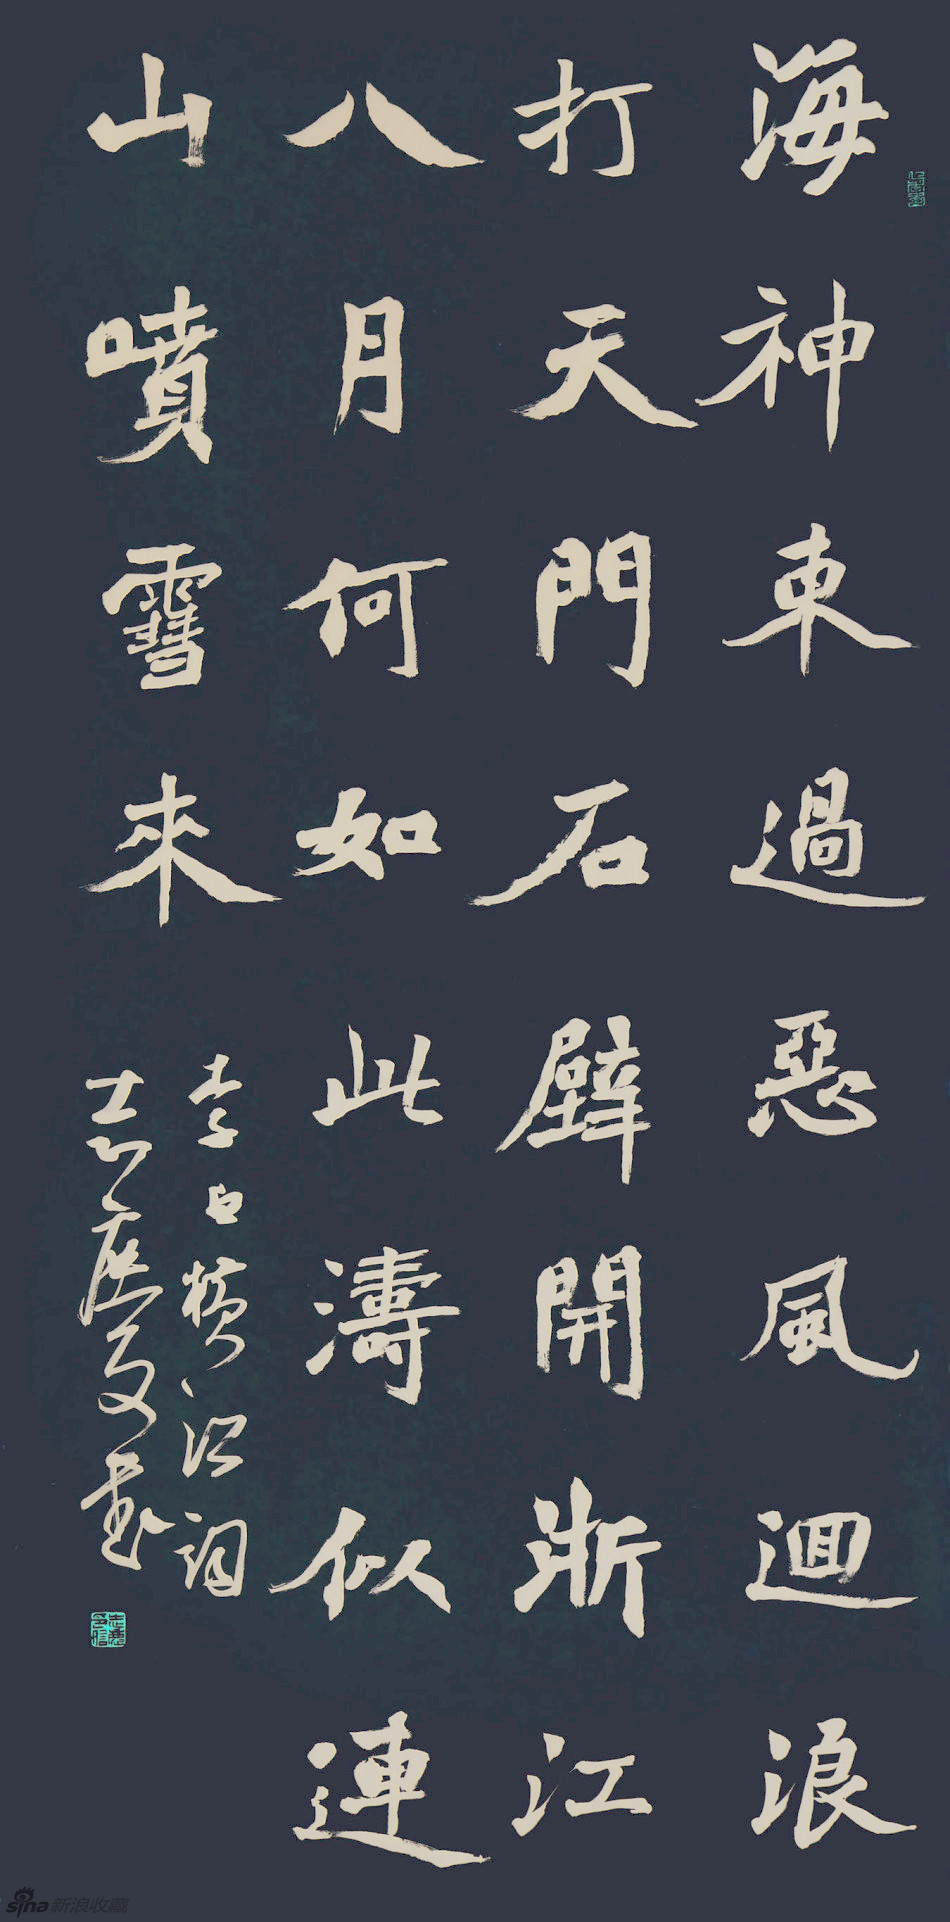 海神東過惡風迴浪
打天門石壁開浙江
八月何如此濤似連
山噴雪來
李白橫江詞
書
sina新浪收藏